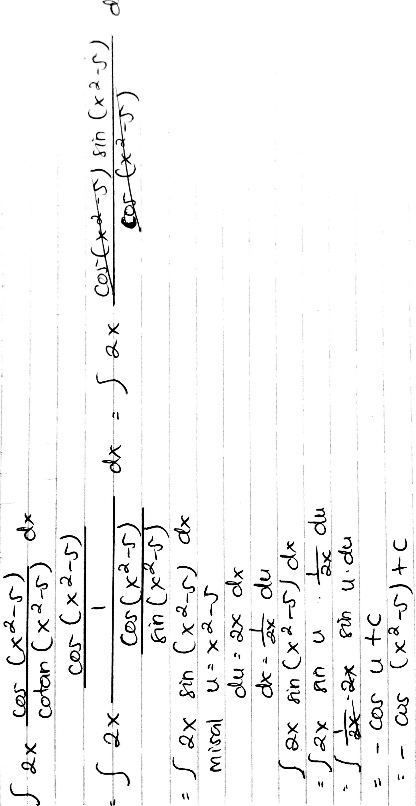 ∫ 2x cos (x²-5) / cotan (x²-5) dx
= ∫ 2x (cos (x²-5) / 1) / (cos (x²-5) / sin (x²-5)) dx = ∫ 2x cos (x²-5) sin (x²-5) / cos (x²-5) d
= ∫ 2x sin (x²-5) dx
misal u = x²-5
du = 2x dx
dx = 1/2x du
∫ 2x sin (x²-5) dx
= ∫ 2x sin u · 1/2x du
= ∫ 1/2x · 2x sin u · du
= - cos u + c
= - cos (x²-5) + c